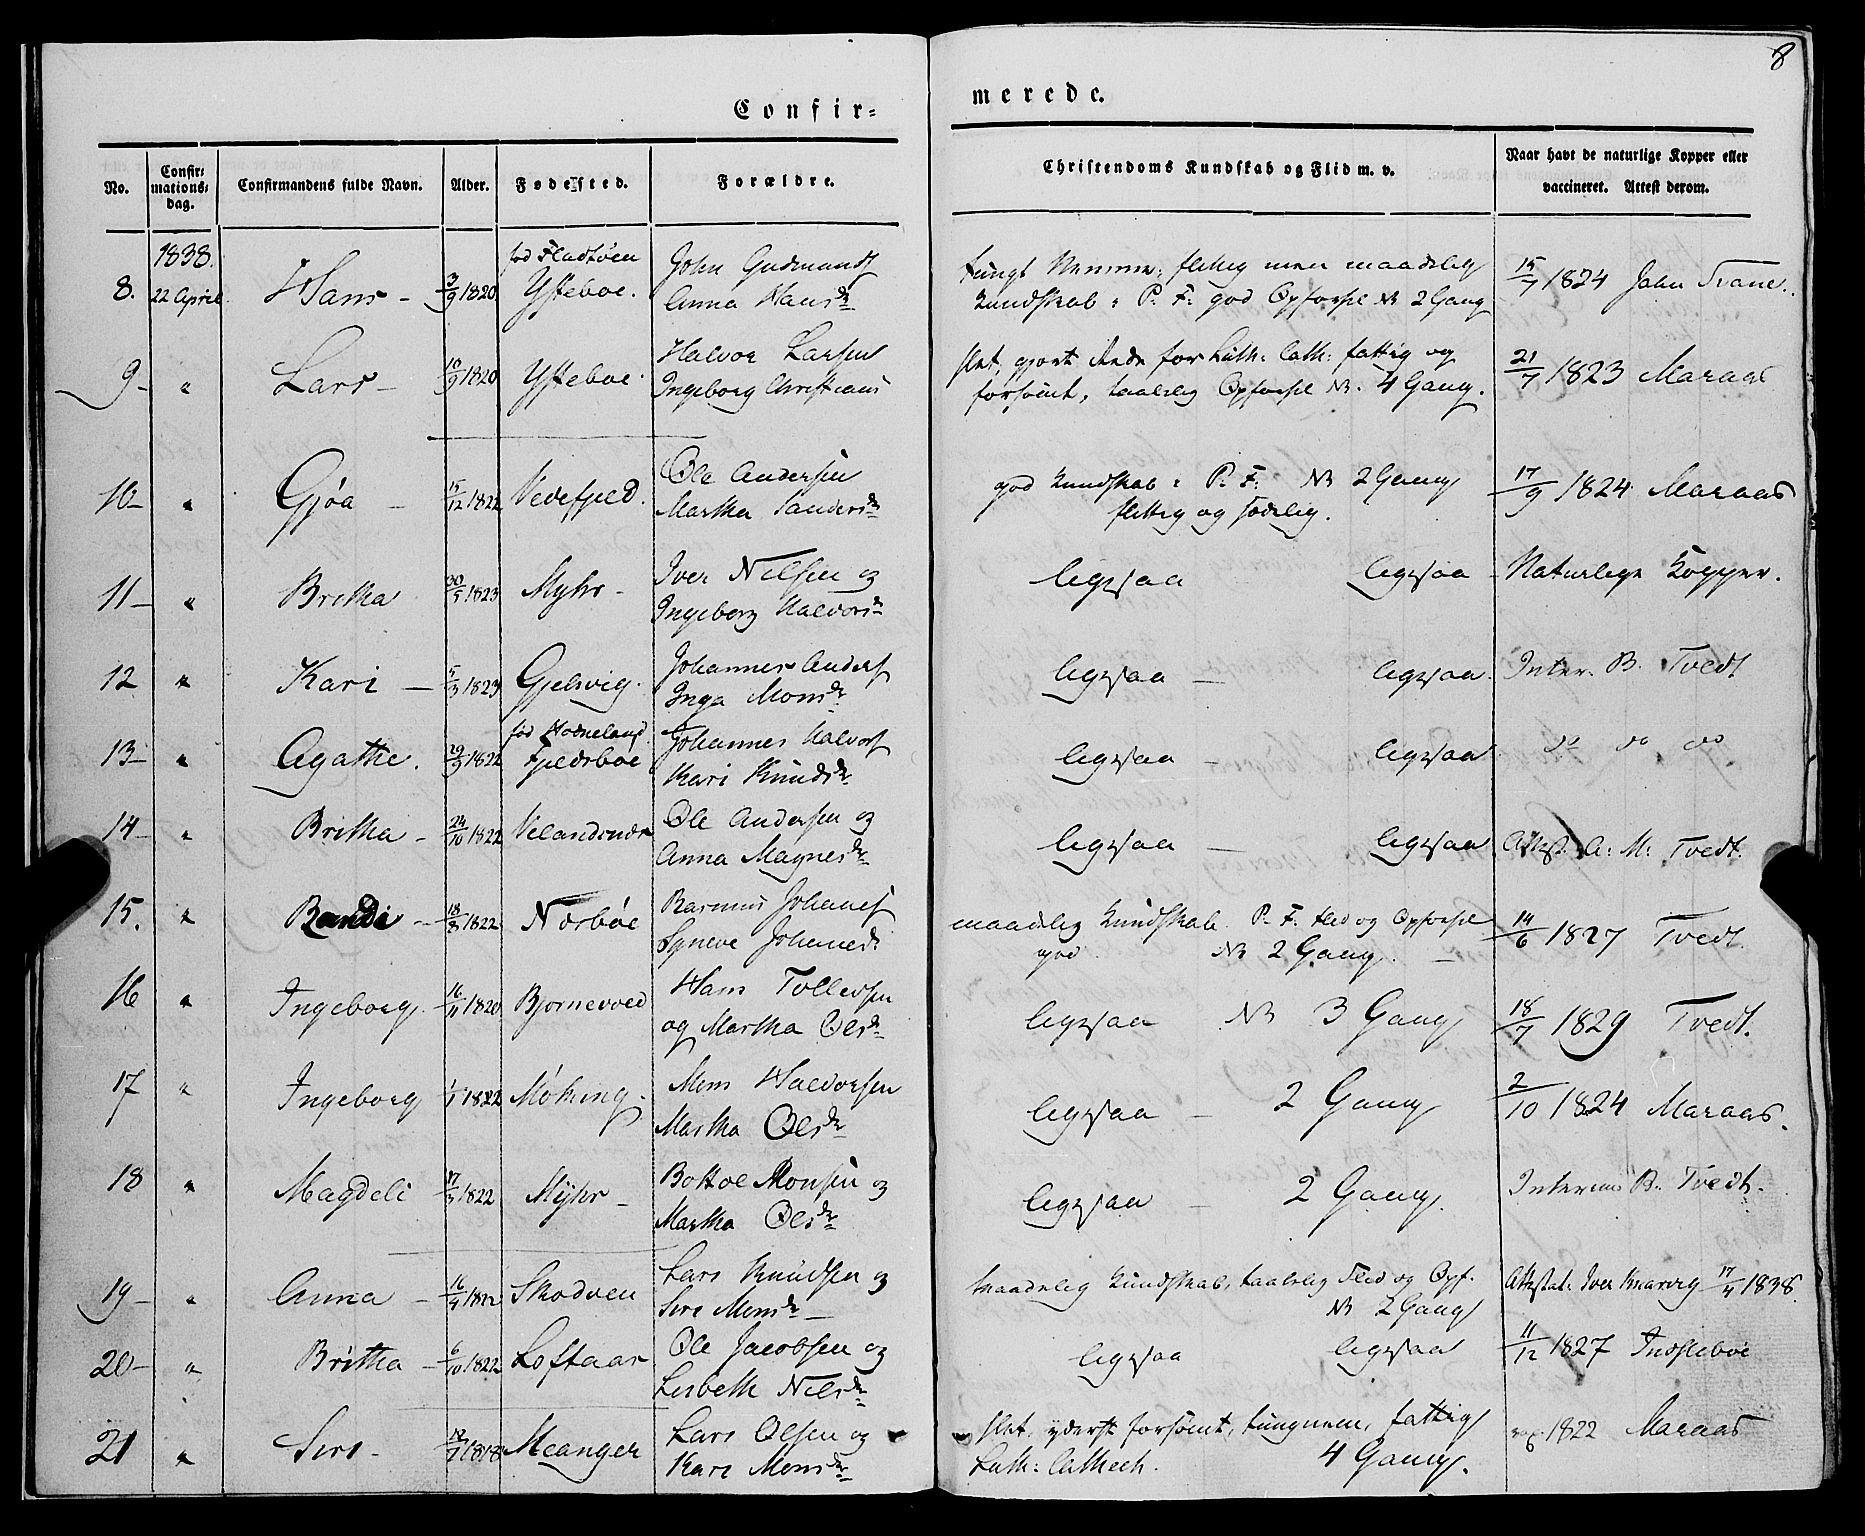 8
Confir=
merede.
No.
Confir=
mations=
dag.
Confirmandens fulde Navn.
Alder.
Fødested.
Forældre.
Christendoms Kundskab og Flid m. v.
Naar havt de naturlige Kopper eller
vaccineret. Attest derom.
1838.
8. 22 April Hans - 3/9 1820 fød Fladtøen
Ysteboe. John Gudmunds
Anna Hansdr
tungt Nemme, flittig men maadelig
Kundskab: P. F. god Opførsel NB 2 Gang
15/7 1824 John Trane.
9- " Lars - 10/9 1820 Ysteboe. Halvor Larsen
Ingeborg Christians
slet, gjort Rede for Luth: Cath: fattig og
forsømt, taalelig Opførsel NB. 4 Gang.
21/7 1823 Maraas
10- " Gjøa - 15/12 1822 Vedefjeld. Ole Andersen
Martha Sandersdr
god Kundskab: P. F. NB 2 Gang
flittig og sædelig.
17/9 1824 Maraas
11- " Britha 30/5 1823 Myhr - Iver Nilsen og
Ingeborg Halvorsdr
ligesaa ligesaa - Naturlige Kopper.
12 " Kari - 5/3 1823 Gjelsvig. Johannes Anders
Inga Monsdr
ligesaa - ligesaa. Inter. B. Tvedt
13- " Agathe. 29/9 1822 fød Hodneland
Fjeldsboe Johannes Halvors
Kari Knudsdr
ligesaa - ligesaa do do do
14- " Britha - 24/10 1822 Velandsnæs Ole Andersen og
Anna Magnesdr
ligesaa - ligesaa Attest. A: M: Tvedt.
15. " Randi - 18/8 1822 Norbøe Rasmus Johannes
Syneve Johannesd:
maadelig Kundskab. P. F. Flid og Opførsel
god. NB 2 Gang. -
14/6 1827 Tvedt.
16 " Ingeborg. 16/11 1820 Bjornevoed Hans Tollevsen
og Martha Olsdr
ligesaa NB 3 Gang 18/7 1829 Tvedt.
17 " Ingeborg 1/1 1822 Møking. Mons Haldorsen
Martha Olsdr
ligesaa - 2 Gang 2/10 1824 Maraas.
18 " Magdeli 17/3 1822 Myhr - Bottol Monsen og
Martha Olsdr
ligesaa - 2 Gang. Interims B. Tvedt.
19- " Anna - 16/4 1822 Skodven Lars Knudsen og
Siri Monsdr -
Maadelig Kundskab, taalelig Flid og Opf.
NB 2 Gang
Attestat: Iver Knarvig 17/4 1838.
20- " Britha - 6/10 1822 Loftaas Ole Jacobsen og
Lisbeth Nilsdr
ligesaa ligesaa 11/12 1827 Indstebøe
21 " Siri - 12/7 1818 Meanger Lars Olsen og
Kari Monsdr
slet, yderst forsømt, tungnem, fattig
Luth: Cathech. 4 Gang.
1822 Maraas